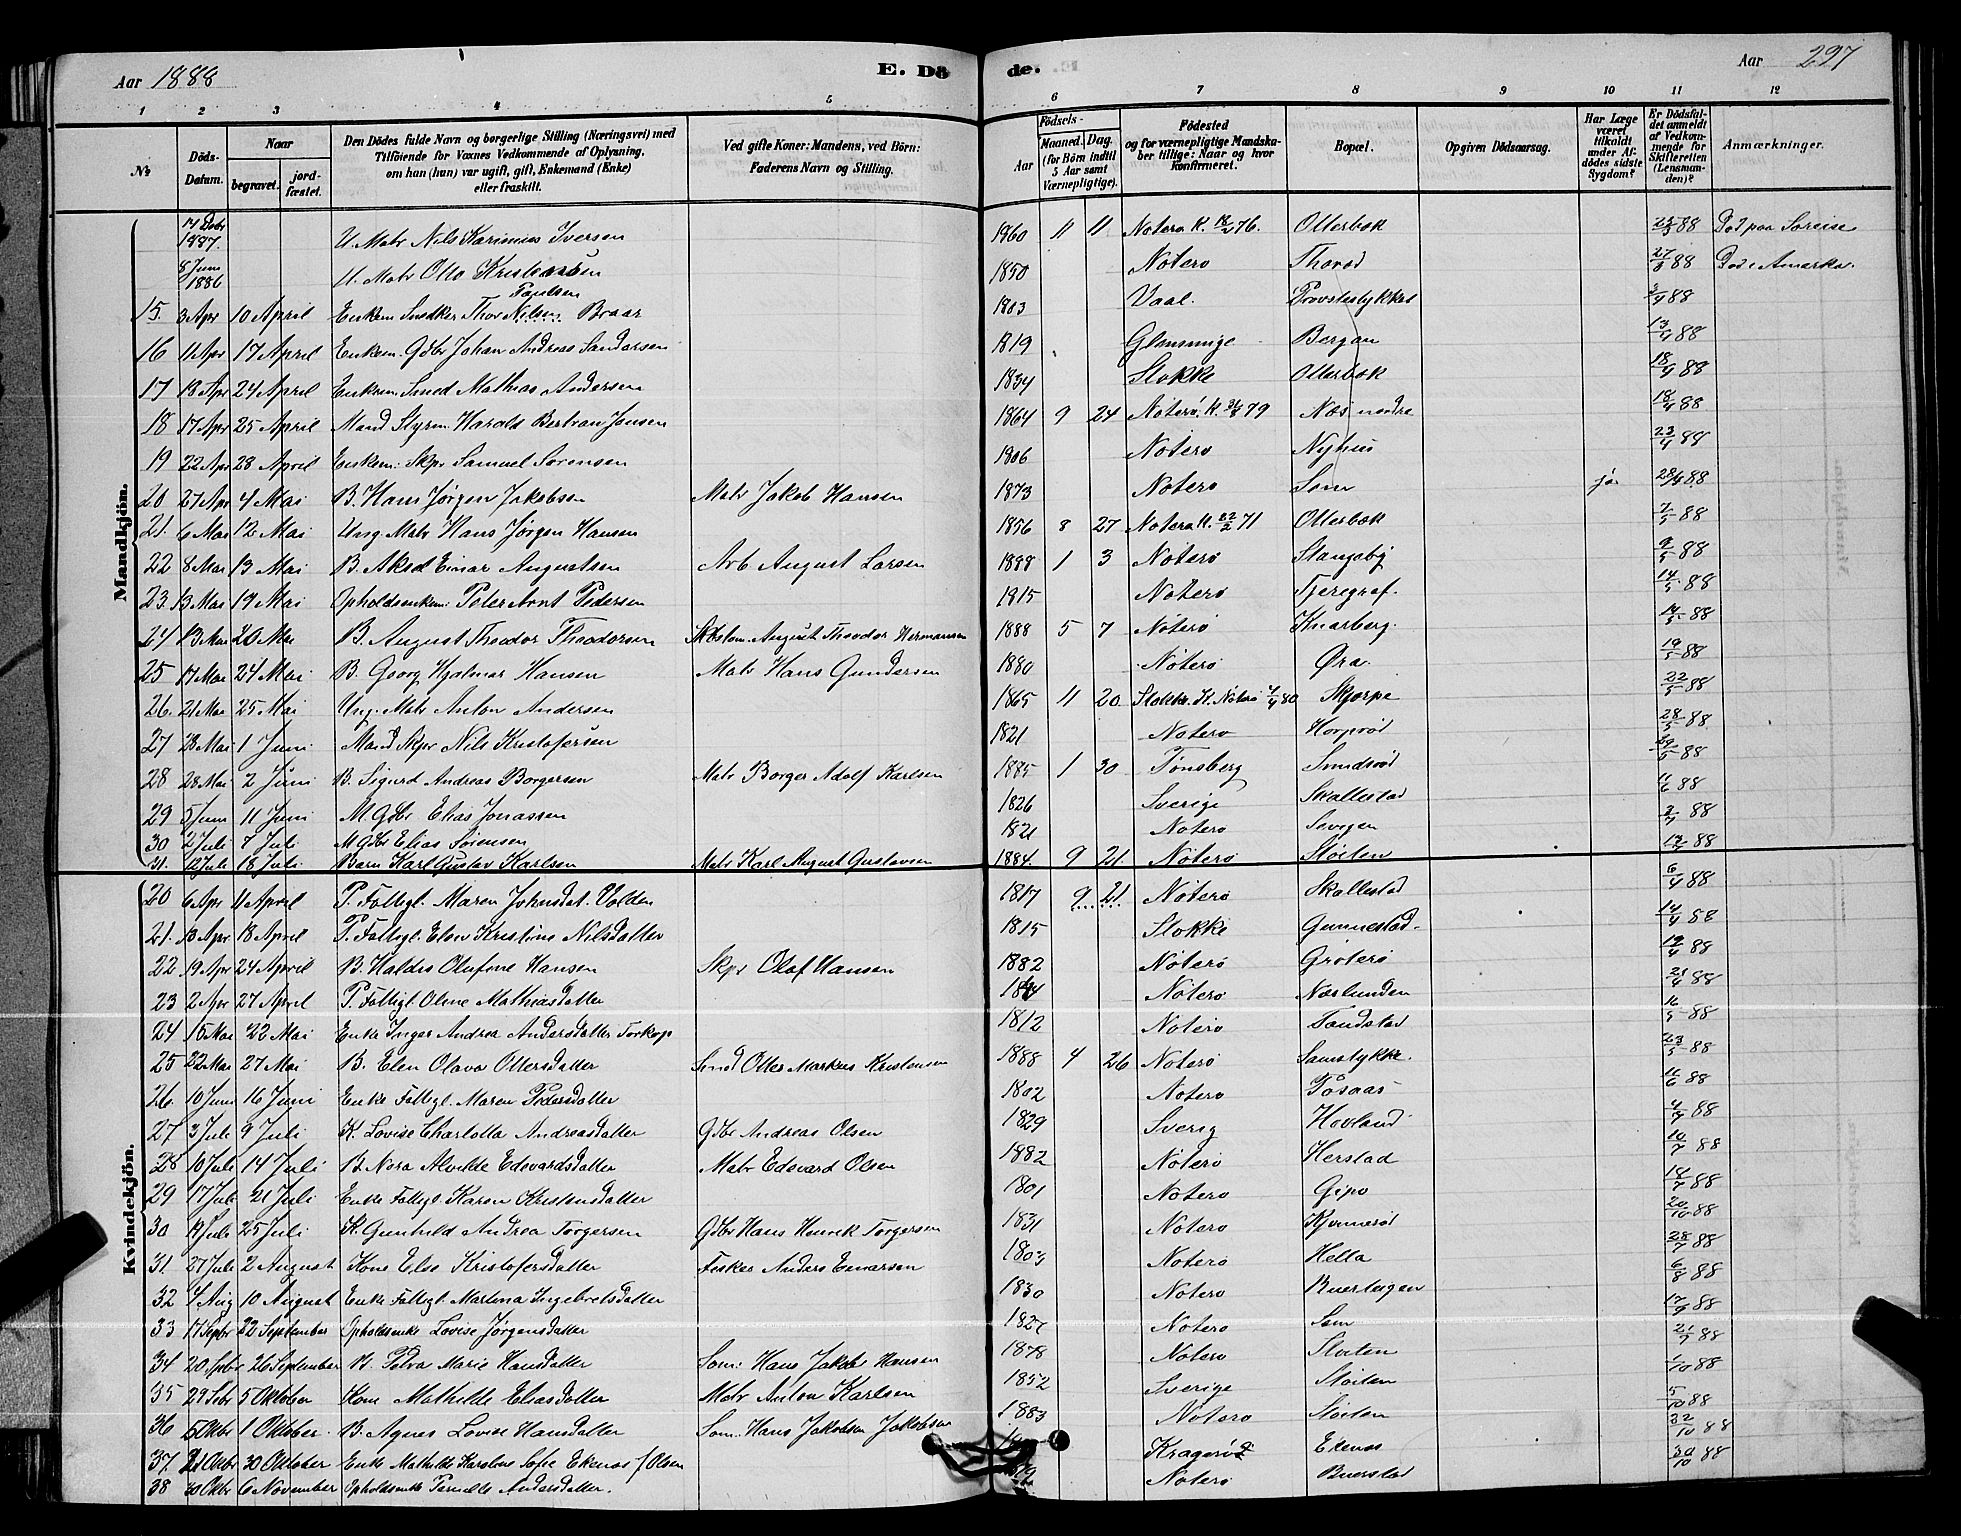 Aar 1888
E. Dö
de.
Aar 297
1 2 3 4 5 6 7 8 9 10 11 12
No
Döds-Datum.
Naar
begravet.
jordfæstet.
Den Dödes fulde Navn og borgerlige Stilling (Næringsvei) med
Tilföiende for Voxnes Vedkommende af Oplysning,
om han (hun) var ugift, gift, Enkemand (Enke)
eller fraskilt.
Ved gifte Koner: Mandens, ved Börn:
Faderens Navn og Stilling.
Födsels-
Aar
Maaned. Dag.
(for Börn indtil
5 Aar samt
Værnepligtige).
Födested
og for værnepligtige Mandskaber tillige: Naar og hvor
Konfirmeret.
Bopæl.
Opgiven Dödsaarsag.
Har Læge været tilkaldt under Afdödes sidste Sygdom?
Er Dödsfaldet anmeldt af Vedkommende for Skifteretten (Lensmanden)?
Anmærkninger.
Mandkjön.
14 Debr 1887 U. Matr Nils Karinius Iversen 1860 11 11 Noterø K. 76. Otterbæk 88 Død paa Søreise
8 Juni 1886 U. Matr Otto Kristensen 1850 Noterø Thorød 27/3 88 Død i Amerka.
15 3 Apr 10 April Enkem Snedker Thor Nilsen Paulsen Braar 1803 Vaal. Provstestykket 3/4 88
16 11 Apr 17 April Enkem. Gdbr Johan Andreas Sandersen 1819 Bergan 13/4 88
17 13 Apr 24 April Enkem Smed Mathias Andersen 1834 Stokke Otterbæk 18/4 88
18 17 Apr 25 April Mand Styrm. Harald Bertran Jansen 1864 9 24 Nøterø. K. 79 Næs nedre 18/4 88
19 22 Apr 28 April Enkem: Skpr Samuel Sørensen 1806 Nøterø Nyhus 23/4 88
20 27 Apr 4 Mai B. Hans Jørgen Jakobsen Matr Jakob Hansen 1873 Nøterø Sem ja 28/4 88
21. 6 Mai 12 Mai Ung. Matr Hans Jørgen Hansen 1856 8 27 Nøterø K. 22/2 71 Otterbæk 7/5 88
22 8 Mai 13 Mai B. Aksel Einar Augustsen Arb August Larsen 1888 1 3 Nøterø Stangeby 9/5 88
23. 13 Mai 19 Mai Opholdsenkem: Peter Arnt Pedersen 1815 Nøterø Tjeregraf. 14/5 88
24 13 Mai 20 Mai B. August Theodor Theodorsen Skbstøm. August Theodor Hermansen 1888 5 7 Nøterø Knarberg. 14/5 88
25 17 Mai 24 Mai B. Georg Hjalmar Hansen Matr Hans Gundersen 1880 Nøterø Øra. 19/5 88
26. 21 Mai 25 Mai Ung. Matr Anton Andersen 1865 11 20 Stokke. K. Nøterø 4/4 80 Skjerpe 22/5 88
27 28 Mai 1 Juni Mand Skpr Nils Kristofersen 1821 Nøterø 28/5 88
28 28 Mai 2 Juni B. Sigurd Andreas Borgersen Matr Borger Adolf Karlsen 1885 1 30 Tønsberg Smidsrød 29/5 88
29 5 Juni 11 Juni M. Gdbr Elias Jonassen 1826 Sverige Skallestad 11/6 88
30 2 Juli 7 Juli M Gdbr Elias Sørensen 1821 Nøterø 3/7 88
31. 12 Juli 18 Juli Barn Karl Gustav Karlsen Matr Karl August Gustavsen 1884. 9 21. Nøterø Støiten 13/7 88
Kvindekjön.
20 6 Apr 11 April P. Fattigl. Maren Johnsdat. Volden 1817 9 21 Nøterø Skallestad 6/4 88
21. 13 Apr 18 April P. Fattigl. Elen Kristine Nilsdatter 1815 Stokke Gunnestad. 14/4 88
22 19 Apr 24 April B. Haldis Olufine Hansen Skpr Olaf Hansen 1882 Nøterø Grøterø 19/4 88
23 2 Apr 27 April P. Fattigl. Oline Mathiasdatter Nøterø Nærlunden 21/4 88
24 15 Mai 22 Mai Enke Inger Andrea Andersdatter Torkop 1812 Nøterø Tandstad 16/5 88
25 22 Mai 27 Mai B. Elen Olava Ottersdatter Smd Otter Markus Kristensen 1888 4 26 Nøterø Semstykke. 23/5 88
26. 10 Juni 16 Juni Enke Fattigl. Maren Pedersdatter 1802 Nøterø 11/6 88
27 3 Juli 9 Juli K. Lovise Charlotta Andreasdatter Gdbr Andreas Olsen 1829 Sverig Hovland 4/7 88
28 10 Juli 14 Juli B. Nora Alvilde Edevardsdatter Matr Edevard Olsen 1882 Nøterø Herstad 10/7 88
29 17 Juli 21 Juli Enke Fattigl. Karen Kristensdatter 1801 Nøterø Gipø 18/7 88
30 Juli 25 Juli K. Gunhild Andrea Torgersen Gdbr Hans Henrik Torgersen 1831 Nøterø Kjønnerød 20/10 88
31. 27 Juli 2 August Kone Else Kristofersdatter Fisker Anders Einarsen 1803 Nøterø Hella 28/7 88
32 4 Aug 10 August Enke Fattigl. Martina Ingebretsdatter 1830 Nøterø Buerhagen 6/8 88
33 17 Septbr 22 September Opholdsenke Lovise Jørgensdatter 1827 Nøterø Sem 17/9 88
34 20 Sptbr 26 September B. Petra Marie Hansdatter Søm: Hans Jakob Hansen 1878 Nøterø Støiten 21/9 88
35 29 Sebr 5 Oktober Kone Mathilde Eliasdatter Matr Anton Karlsen 1852 Sverige Støiten 1/10 88
36 5 Oktbr 1 Oktober. B. Agnes Lovise Hansdatter Søm. Hans Jakobsen Jakobsen 1883 Nøterø Støiten 5/10 88
37. 21 Oktbr 30 Oktober Enke Mathilde Karoline Sofie Ekenæs f Olsen Kragerø Ekenæs 22/10 88
38 30 Oktbr 6 November Opholdsenke Pernille Andersdatter. Nøterø Buerstad 30/10 88